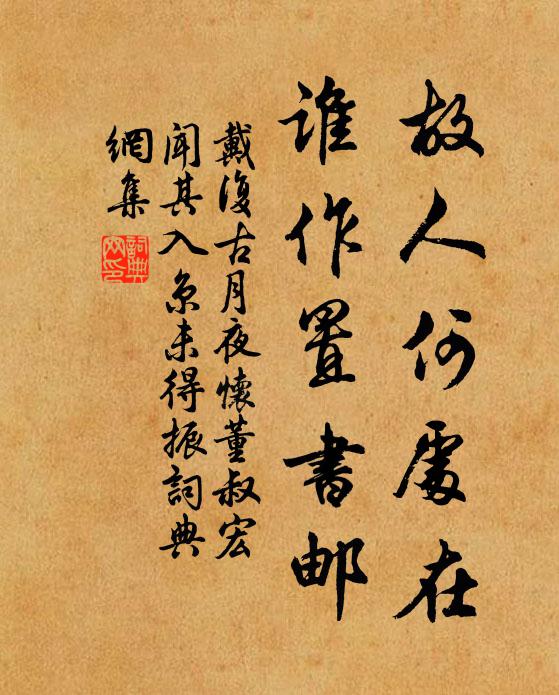 故人何處在
谁作置書邮
戴復古月夜懷董叔宏
聞其入京未得振詞典
網集
詞典網印